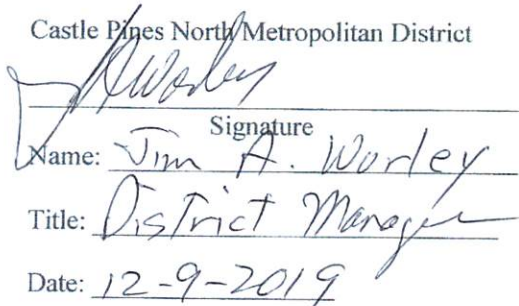 Castle Pines North Metropolitan District
JAWorley
Signature
Name: Jim A. Worley
Title: District Manager
Date: 12-9-2019